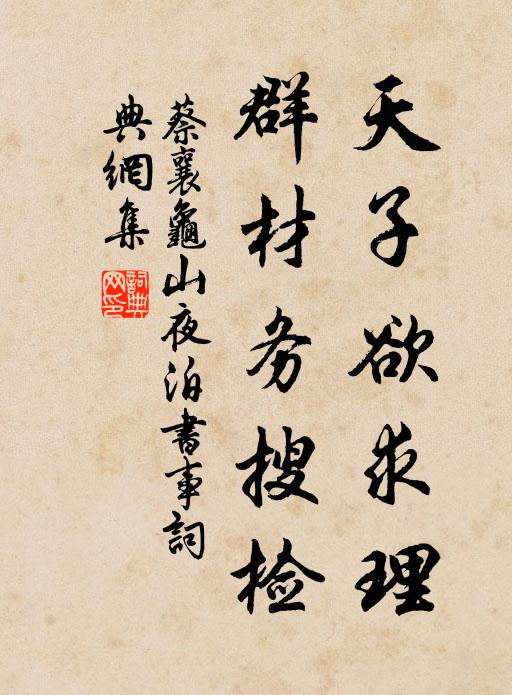 天子欲求理
群材务搜检
蔡襄龜山夜泊書事詞
典網集
詞典
网印